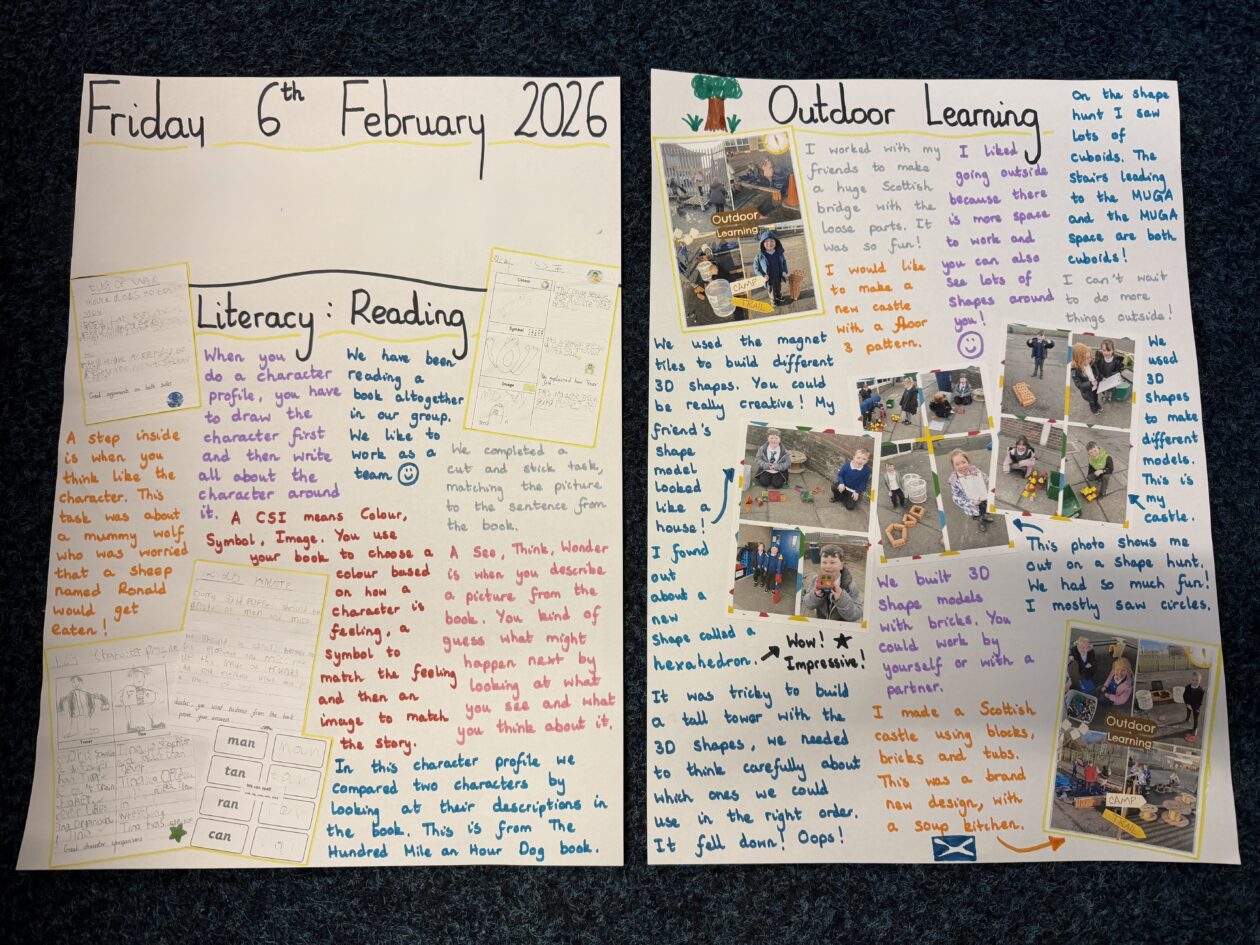 Friday 6th February 2026
Literacy: Reading
TUG OF WAR
Good arguments on both sides
When you
do a character
profile, you have
to draw the
character first
and then write
all about the
character around
it.
We have been
reading a
book altogether
in our group.
We like to
work as a
team
Colour
Symbol
Image
We completed a
cut and stick task,
matching the picture
to the sentence from
the book.
A step inside
is when you
think like the
character. This
task was about
a mummy wolf
who was worried
that a sheep
named Ronald
would get
eaten!
A CSI means Colour,
Symbol, Image. You use
your book to choose a
colour based
on how a
character is
feeling, a
symbol to
match the feeling
and then an
image to match
the story.
A See, Think, Wonder
is when you describe
a picture from the
book. You kind of
guess what might
happen next by
looking at what
you see and what
you think about it.
man
tan
ran
can
In this character profile we
compared two characters by
looking at their descriptions in
the book. This is from The
Hundred Mile an Hour Dog book.
Outdoor Learning
Outdoor
Learning
CAMP
TRAIL
I worked with my
friends to make
a huge Scottish
bridge with the
loose parts. It
was so fun!
I would like
to make a
new castle
with a floor
3 pattern.
I liked
going outside
because there
is more space
to work and
you can also
see lots of
shapes around
you!
On the shape
hunt I saw
lots of
cuboids. The
stairs leading
to the MUGA
and the MUGA
space are both
cuboids!
I can't wait
to do more
things outside!
We used the magnet
tiles to build different
3D shapes. You could
be really creative! My
friend's
shape
model
looked
like a
house!
We
used
3D
shapes
to make
different
models.
This is
my
castle.
I found
out
about a
new
shape called a
hexahedron.
Wow!
Impressive!
This photo shows me
out on a shape hunt.
We had so much fun!
I mostly saw circles.
We built 3D
shape models
with bricks. You
could work by
yourself or with a
partner.
It was tricky to build
a tall tower with the
3D shapes, we needed
to think carefully about
which ones we could
use in the right order.
It fell down! Oops!
I made a Scottish
castle using blocks,
bricks and tubs.
This was a brand
new design, with
a soup kitchen.
Outdoor
Learning
CAMP
TRAIL